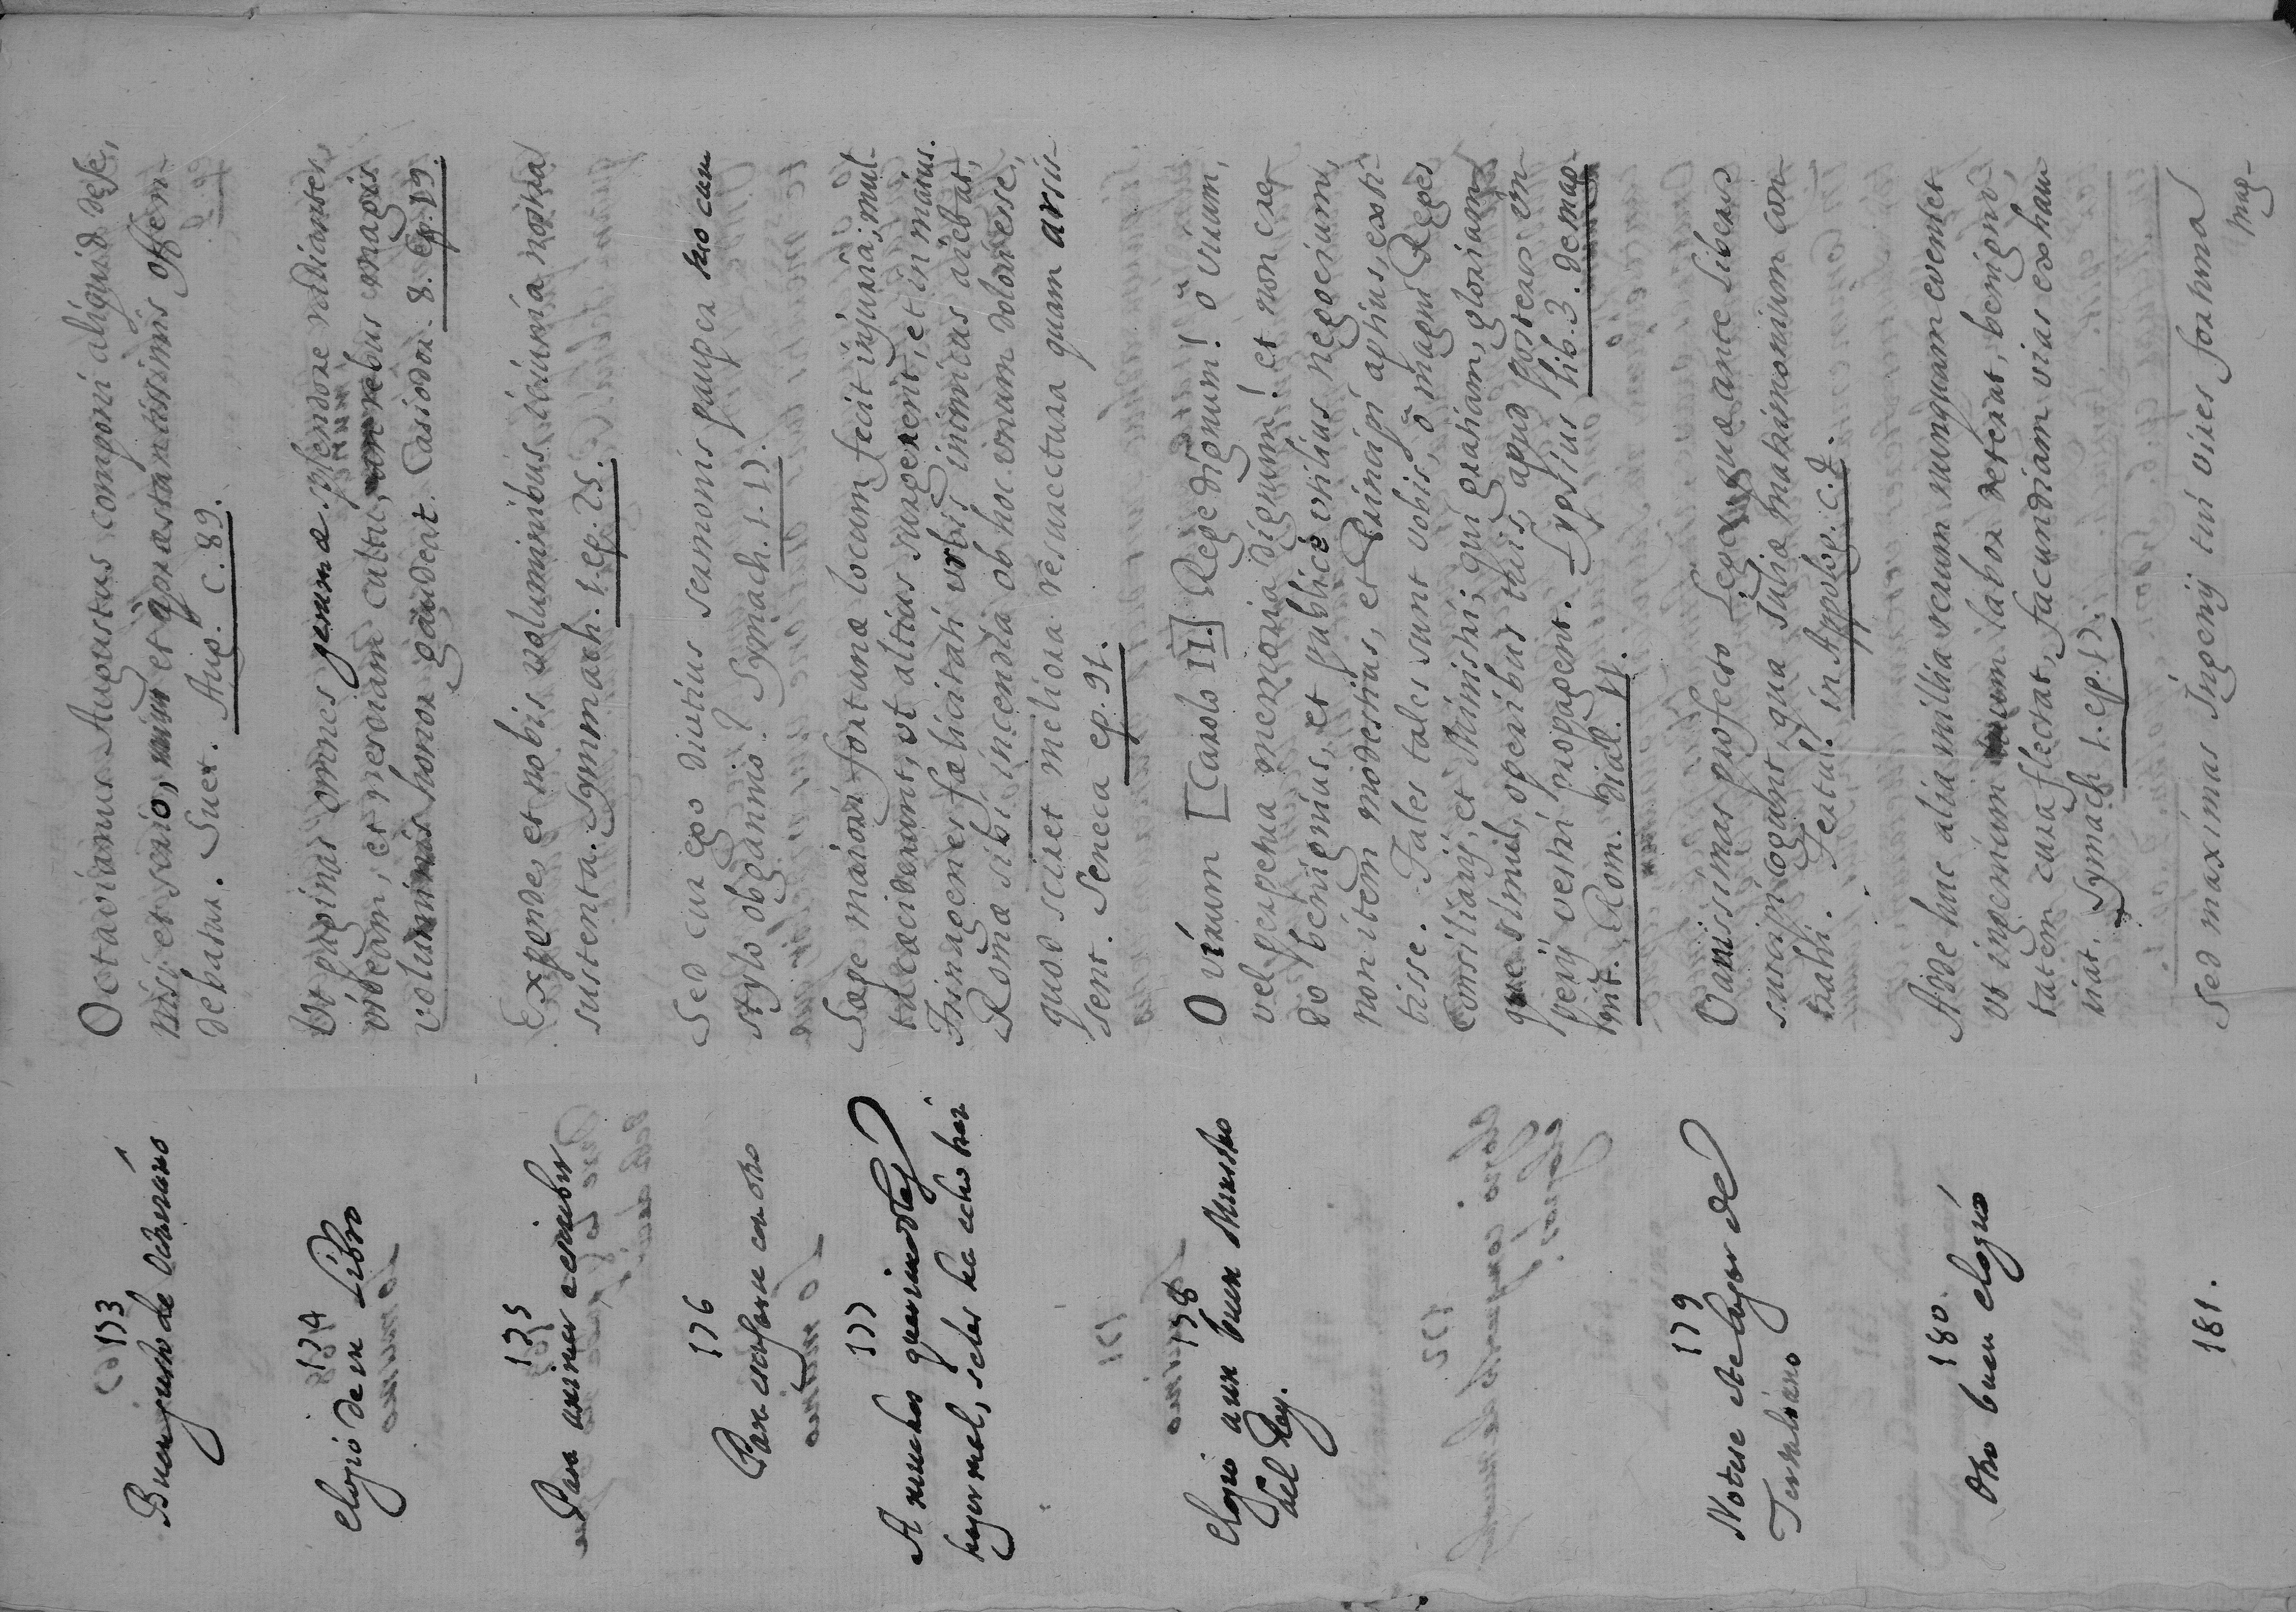 173
Buen gusto de Octaviano
Octavianus Augustus componi aliquid de se,
nisi et serio, et à præstantissimis offen-
debatur. Suet. Aug. C. 89.
174
elogio de un Libro
Ut paginas omnes gemmæ splendore radiantes
videam, et nerdiam cultu, omnebus magis
voluminis honor gaudent. Casiodor. 8. Ep. 19.
175
Para animar a escribir
Expende, et nobis voluminibus ieiunia nostra
sustenta. Symmach. 1. ep. 25.
176
Para escusarse con otro
Sed cur ego diutius sermonis pauper tecum
stylo obgannio? Symach. 1. 17.
177
A muchos
hazer mal, seles ha echo
Sæpe maiori fortunæ locum fecit injuria; mul-
ta ceciderunt, ut altius surgerent, et in maius.
Timagenes fælicitati urbis inimicus aiebat,
Romæ sibi incendia ob hoc unum dolori esse,
quod sciret meliora resurrectura quam arsis-
sent. Seneca ep. 91.
178
elogio a un buen Ministro
del Rey.
O virum [Carolo II.] Rege dignum! ô virum,
vel perpetua memoria dignum! et non cre-
do benignius, et publicè utilius negocium,
non item modestius, et Principi aptius, exsti-
tisse. Tales tales sunt vobis, ô magni Reges
Consiliarij, et Ministri; qui gratiam, gloriam-
que simul, operibus tuis, apud posteros im-
perij vestri propagent. Lypsius lib. 3. de mag-
nit. Rom. dial. 11.
179
Notense estas leyes de
Tertuliano
Vanissimas profecto Leges, quæ ante liberos
suscipi cogunt, qua Juliæ matrimonium con-
trahi. Tertul. in Appolog. c. 4.
180.
Otro buen elogio
Adde huc alia millia rerum nunquam eveniet
ut ingenium tuum labor deterat, benigni-
tatem cura flectat, facundiam vias exhau-
riat. Symach 1. ep. 17.
181.
Sed maximas Ingenij tui vires fortuna
mag-